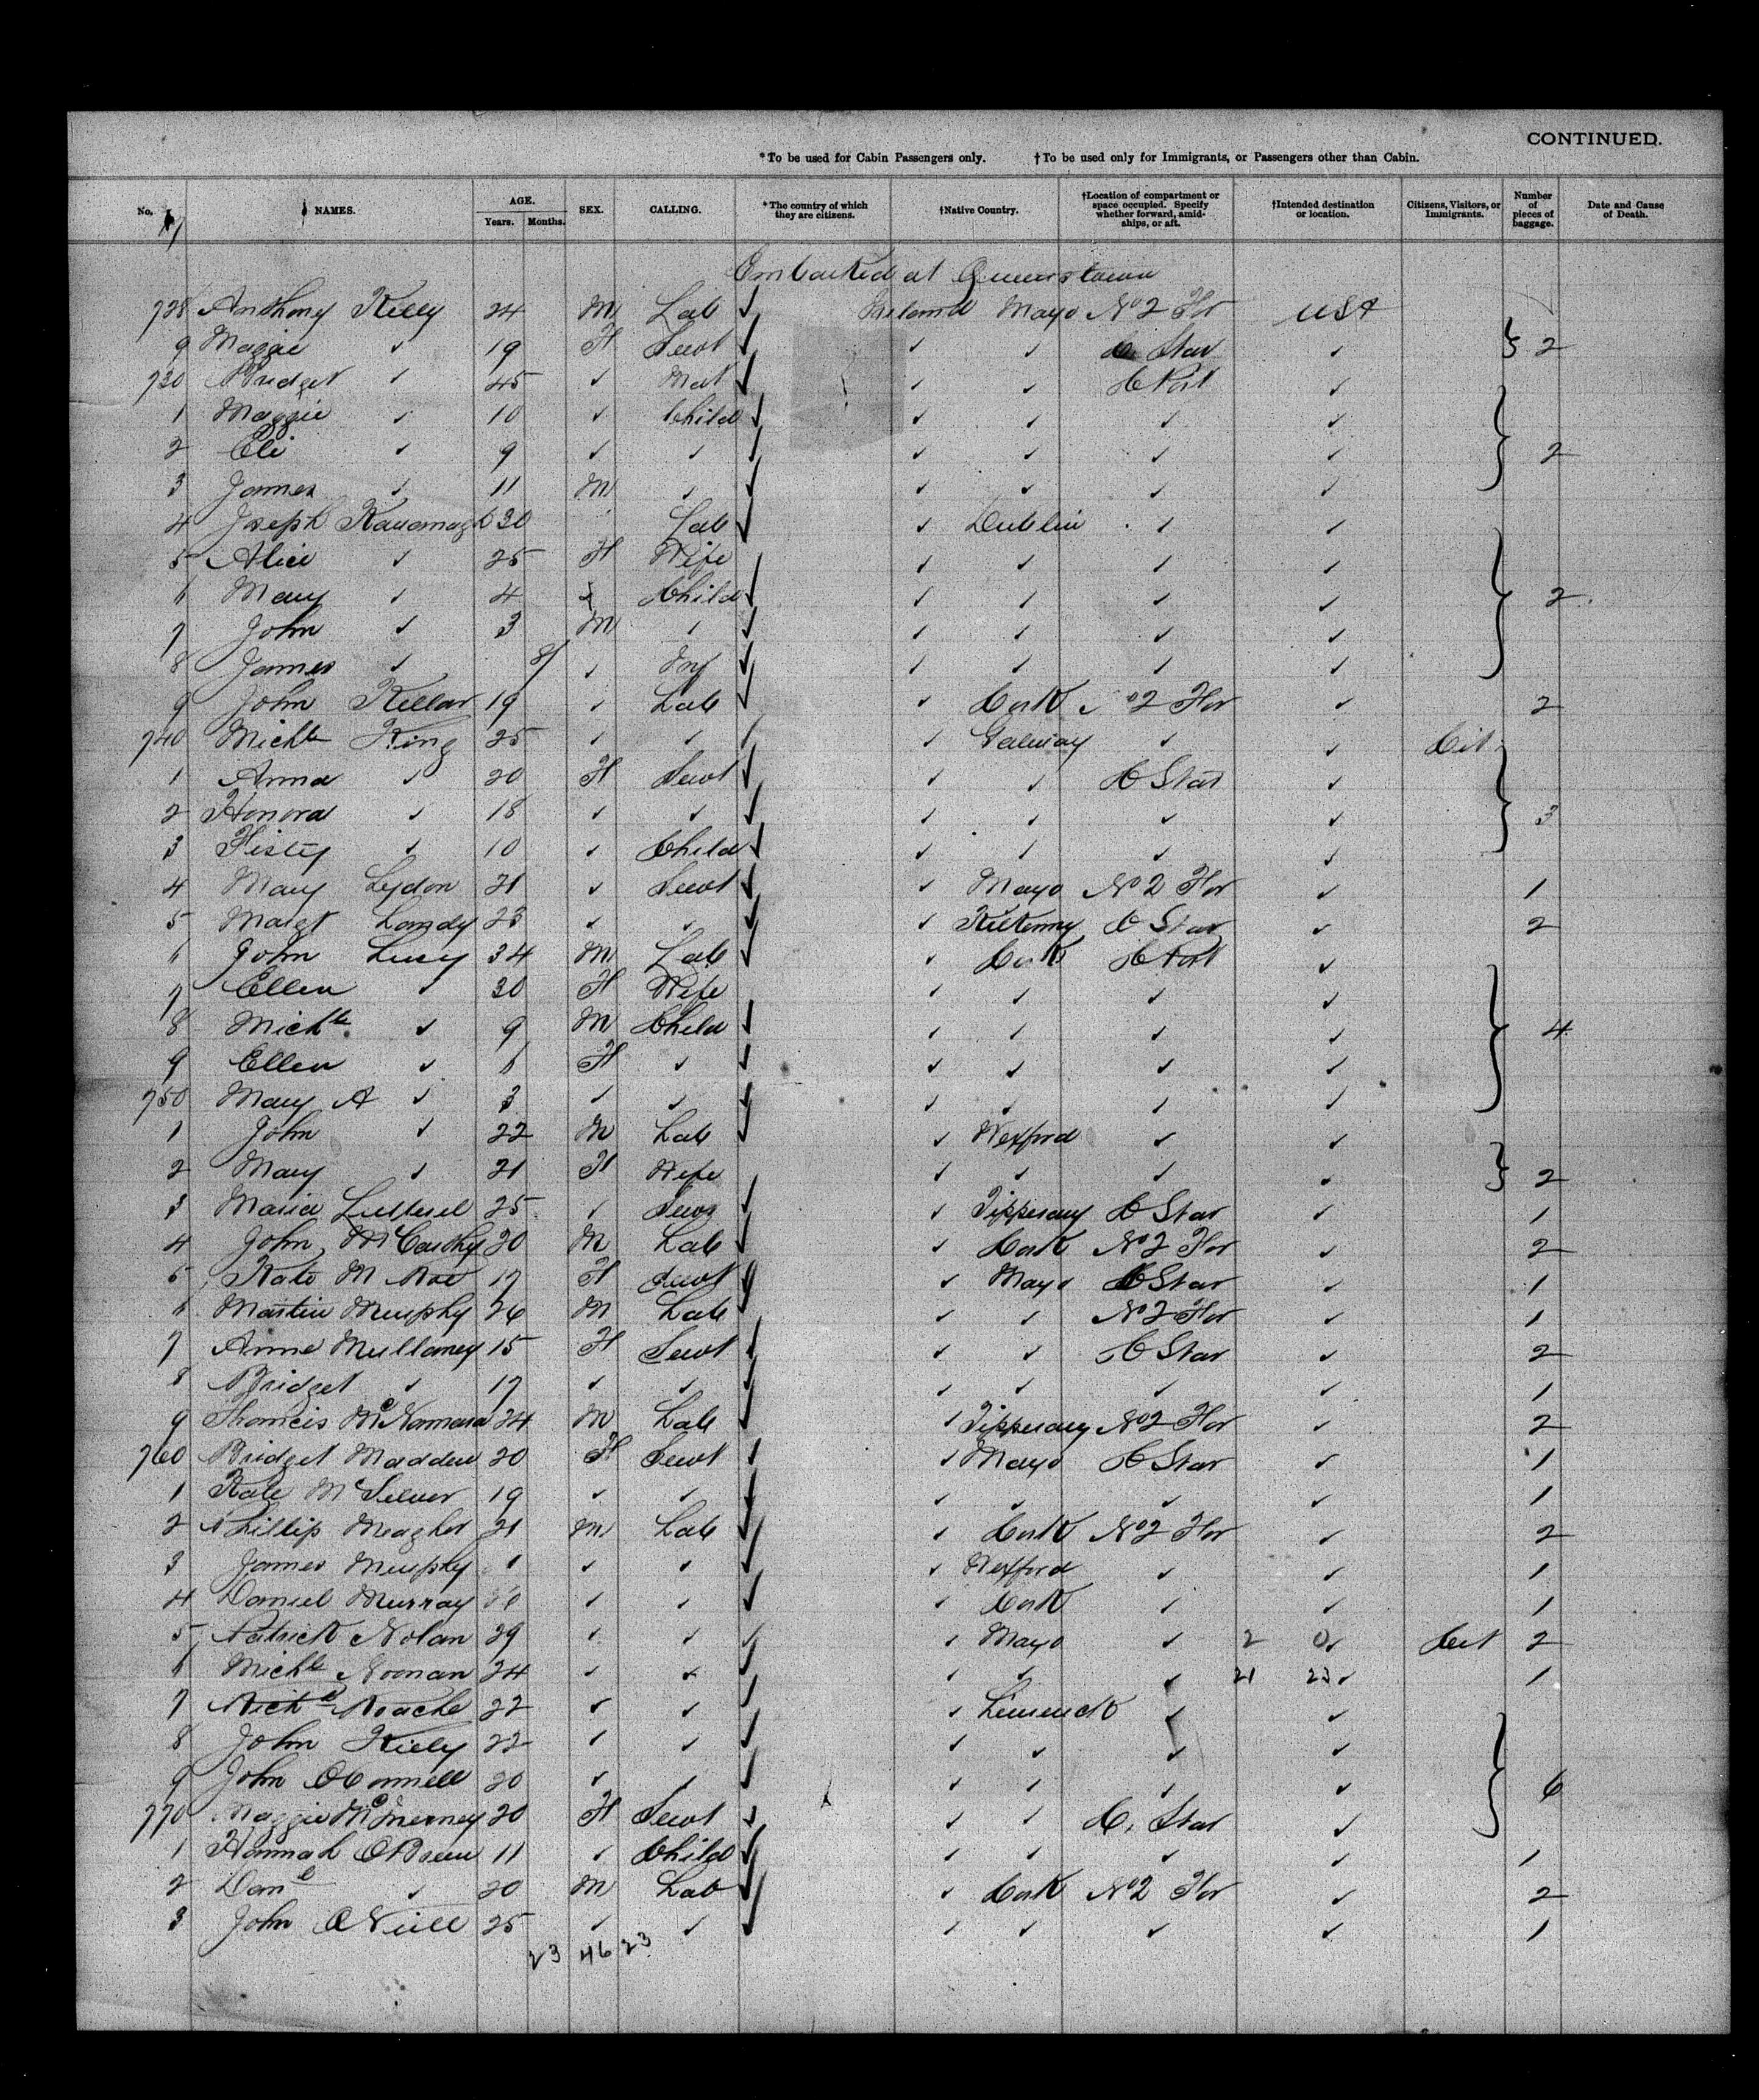 CONTINUED.
*To be used for Cabin Passengers only. †To be used only for Immigrants, or Passengers other than Cabin.
No. NAMES. AGE. Years. Months. SEX. CALLING. *The country of which they are citizens. †Native Country. †Location of compartment or space occupied. Specify whether forward, amidships, or aft. †Intended destination or location. Citizens, Visitors, or Immigrants. Number of pieces of baggage. Date and Cause of Death.
Embarked at Queenstown
728 Anthony Kelly 24 M Lab ✓ Ireland Mayo No 2 For USA
9 Maggie ✓ 19 F Servt ✓ ✓ ✓ Star ✓ } 2
730 Bridget ✓ 45 ✓ Mat ✓ ✓ ✓ C Port ✓
1 Maggie ✓ 10 ✓ Child ✓ ✓ ✓ ✓ ✓
2 Eli ✓ 9 ✓ ✓ ✓ ✓ ✓ ✓ ✓ } 2
3 James ✓ 11 M ✓ ✓ ✓ ✓ ✓ ✓
4 Joseph Kavanagh 30 Lab ✓ ✓ Dublin ✓ ✓
5 Alice ✓ 25 F Wife ✓ ✓ ✓ ✓
6 Mary ✓ 4 ✓ Child ✓ ✓ ✓ ✓ ✓ } 2
7 John ✓ 3 M ✓ ✓ ✓ ✓ ✓ ✓
8 James ✓ ✓ Inf ✓ ✓ ✓ ✓ ✓
9 John Kellar 19 ✓ Lab ✓ ✓ Cork No 2 For ✓ 2
740 Michl King 25 ✓ ✓ ✓ ✓ Galway ✓ ✓ Cit
1 Anna ✓ 20 F Servt ✓ ✓ ✓ C Star ✓
2 Honora ✓ 18 ✓ ✓ ✓ ✓ ✓ ✓ ✓ } 3
3 ✓ 10 ✓ Child ✓ ✓ ✓ ✓ ✓
4 Mary Lydon 21 ✓ Servt ✓ ✓ Mayo No 2 For ✓ 1
5 Margt 23 ✓ ✓ ✓ ✓ Kilkenny C Star ✓ 2
6 John Lucy 34 M Lab ✓ ✓ Cork C Port ✓
7 Ellen ✓ 30 F Wife ✓ ✓ ✓ ✓
8 Michl ✓ 9 M Child ✓ ✓ ✓ ✓ ✓ } 4
9 Ellen ✓ 6 F ✓ ✓ ✓ ✓ ✓ ✓
750 Mary A ✓ 3 ✓ ✓ ✓ ✓ ✓ ✓ ✓
1 John ✓ 22 M Lab ✓ ✓ Wexford ✓ ✓
2 Mary ✓ 21 F Wife ✓ ✓ ✓ ✓ } 2
3 Maria 25 ✓ Servt ✓ ✓ Tipperary C Star ✓ 1
4 John McCarthy 20 M Lab ✓ ✓ Cork No 2 For ✓ 2
5 Kate 17 F Servt ✓ ✓ Mayo C Star ✓ 1
6 Martin Murphy 26 M Lab ✓ ✓ No 2 For ✓ 1
7 Anne Mullaney 15 F Servt ✓ ✓ ✓ C Star ✓ 2
8 Bridget ✓ 17 ✓ ✓ ✓ ✓ ✓ ✓ ✓ 1
9 McNamara 24 M Lab ✓ ✓ Tipperary No 2 For ✓ 2
760 Bridget Madden 20 F Servt ✓ ✓ Mayo C Star ✓ 1
1 Kate 19 ✓ ✓ ✓ ✓ ✓ ✓ ✓ 1
2 Phillip Meagher 21 M Lab ✓ ✓ Cork No 2 For ✓ 2
3 James Murphy ✓ ✓ ✓ ✓ Wexford ✓ ✓ 1
4 Daniel Murray ✓ ✓ ✓ ✓ Cork ✓ ✓ 1
5 Patrick Nolan 29 ✓ ✓ ✓ ✓ Mayo ✓ 2 0 ✓ Cit 2
6 Michl Noonan 24 ✓ ✓ ✓ ✓ ✓ ✓ 21 23 ✓ 1
7 Roache 22 ✓ ✓ ✓ ✓ Limerick ✓ ✓
8 John Kiely 22 ✓ ✓ ✓ ✓ ✓ ✓ ✓
9 John OConnell 20 ✓ ✓ ✓ ✓ ✓ ✓ ✓ } 6
770 Maggie McInerney 20 F Servt ✓ ✓ ✓ C. Star ✓
1 Hannah OBrien 11 ✓ Child ✓ ✓ ✓ ✓ ✓ 1
2 Danl ✓ 20 M Lab ✓ ✓ Cork No 2 For ✓ 2
3 John ONeill 25 ✓ ✓ ✓ ✓ ✓ ✓ ✓ 1
23 46 23